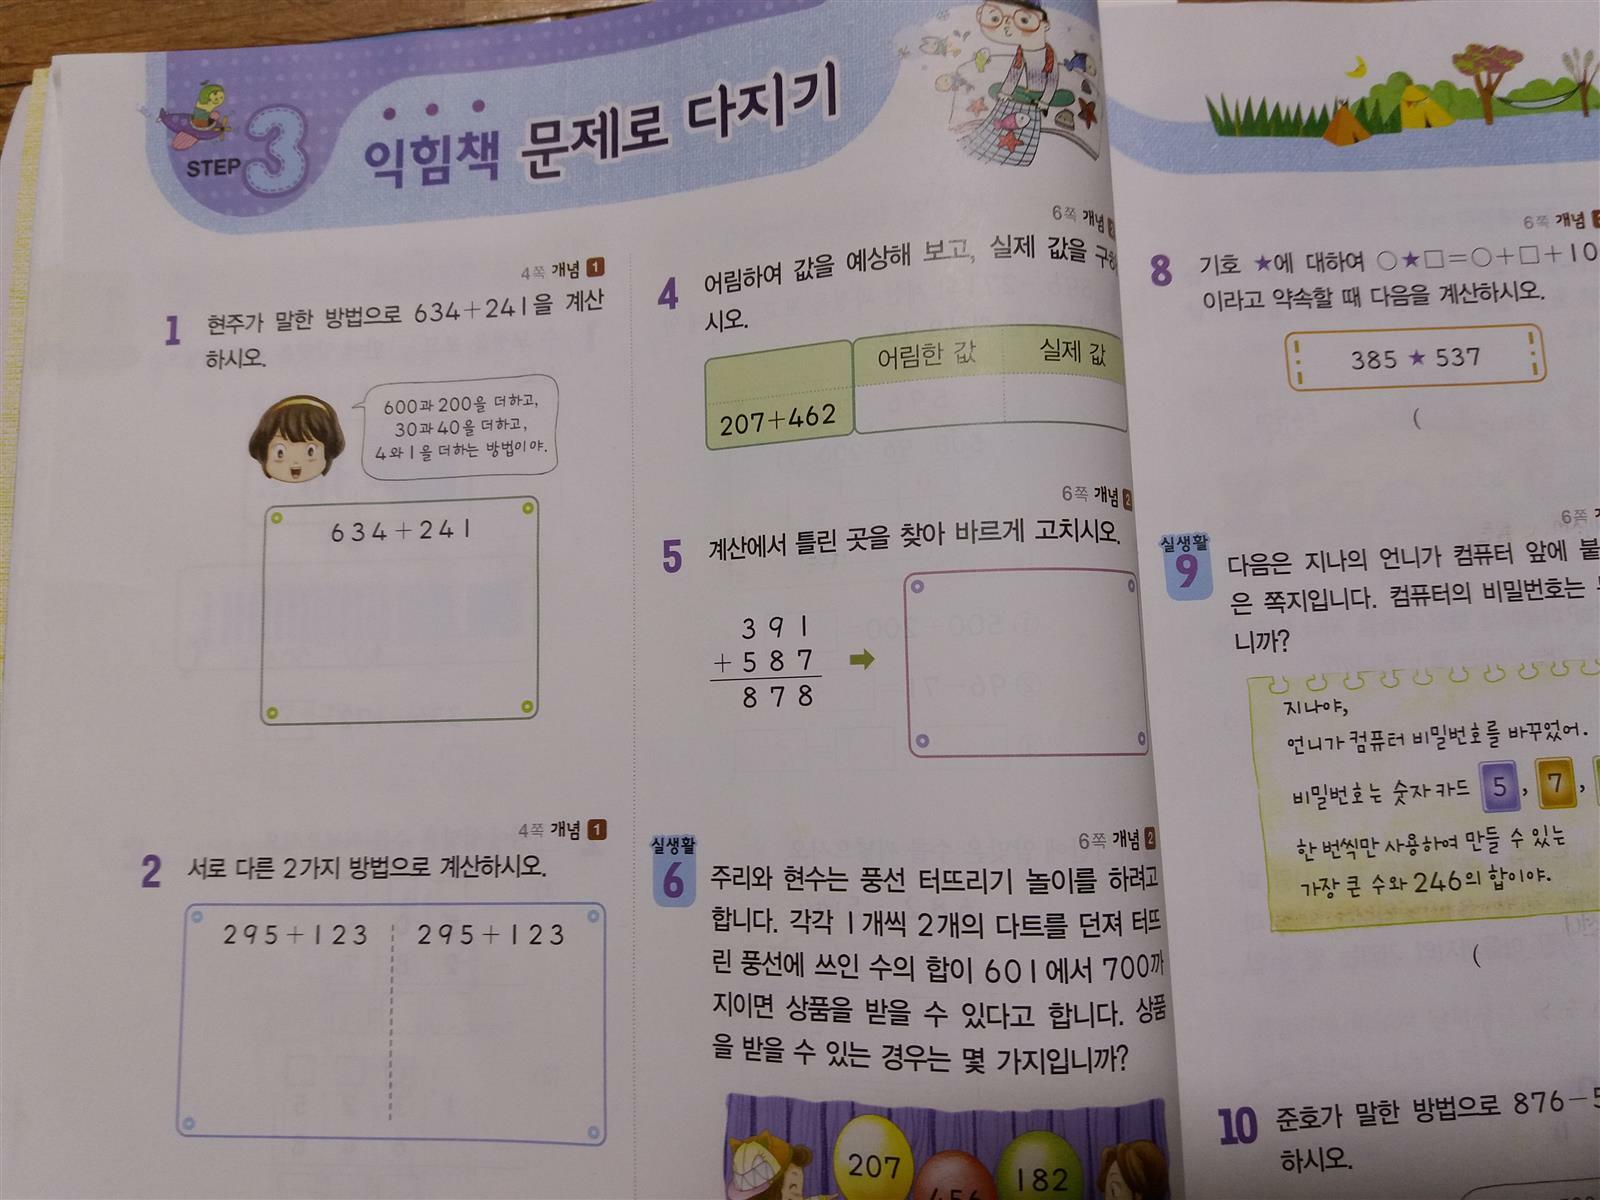 STEP 3 익힘책 문제로 다지기
4쪽 개념 1
1 현주가 말한 방법으로 634+241을 계산
하시오.
600과 200을 더하고,
30과 40을 더하고,
4와 1을 더하는 방법이야.
634+241
4쪽 개념 1
2 서로 다른 2가지 방법으로 계산하시오.
295+123 295+123
6쪽 개념 2
4 어림하여 값을 예상해 보고, 실제 값을 구하
시오.
어림한 값 실제 값
207+462
6쪽 개념 2
5 계산에서 틀린 곳을 찾아 바르게 고치시오.
391
+587
878
6쪽 개념 2
실생활
6 주리와 현수는 풍선 터뜨리기 놀이를 하려고
합니다. 각각 1개씩 2개의 다트를 던져 터뜨
린 풍선에 쓰인 수의 합이 601에서 700까
지이면 상품을 받을 수 있다고 합니다. 상품
을 받을 수 있는 경우는 몇 가지입니까?
207
456
182
6쪽 개념
8 기호 ★에 대하여 ○★□=○+□+10
이라고 약속할 때 다음을 계산하시오.
385 ★ 537
(
6쪽
실생활
9 다음은 지나의 언니가 컴퓨터 앞에 붙
은 쪽지입니다. 컴퓨터의 비밀번호는
니까?
지나야,
언니가 컴퓨터 비밀번호를 바꾸었어.
비밀번호는 숫자 카드 5, 7,
한 번씩만 사용하여 만들 수 있는
가장 큰 수와 246의 합이야.
(
10 준호가 말한 방법으로 876-5
하시오.